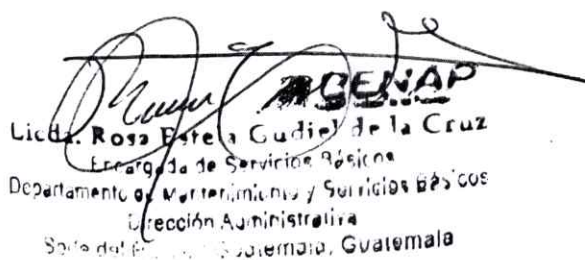 RENAP
Licda. Rosa Estela Gudiel de la Cruz
Encargada de Servicios Básicos
Departamento de Mantenimiento y Servicios Básicos
Dirección Administrativa
Sede del Guatemala, Guatemala